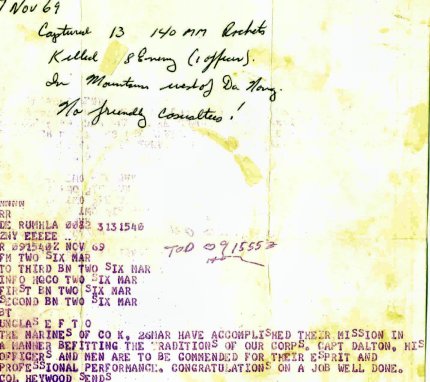 7 Nov 69
Captured 13 140 MM Rockets
Killed 8 Enemy (1 officer).
In Mountains west of Da Nang.
No friendly casualties!
RR
DE RUMHLA 0032 3131540
ZNY EEEEE
R 091540Z NOV 69
FM TWO SIX MAR
TO THIRD BN TWO SIX MAR
INFO HQCO TWO SIX MAR
FIRST BN TWO SIX MAR
SECOND BN TWO SIX MAR
BT
UNCLAS E F T O
TOD 091555Z
THE MARINES OF CO K, 26MAR HAVE ACCOMPLISHED THEIR MISSION IN
A MANNER BEFITTING THE TRADITIONS OF OUR CORPS. CAPT DALTON, HIS
OFFICERS AND MEN ARE TO BE COMMENDED FOR THEIR ESPRIT AND
PROFESSIONAL PERFORMANCE. CONGRATULATIONS ON A JOB WELL DONE.
COL HEYWOOD SENDS